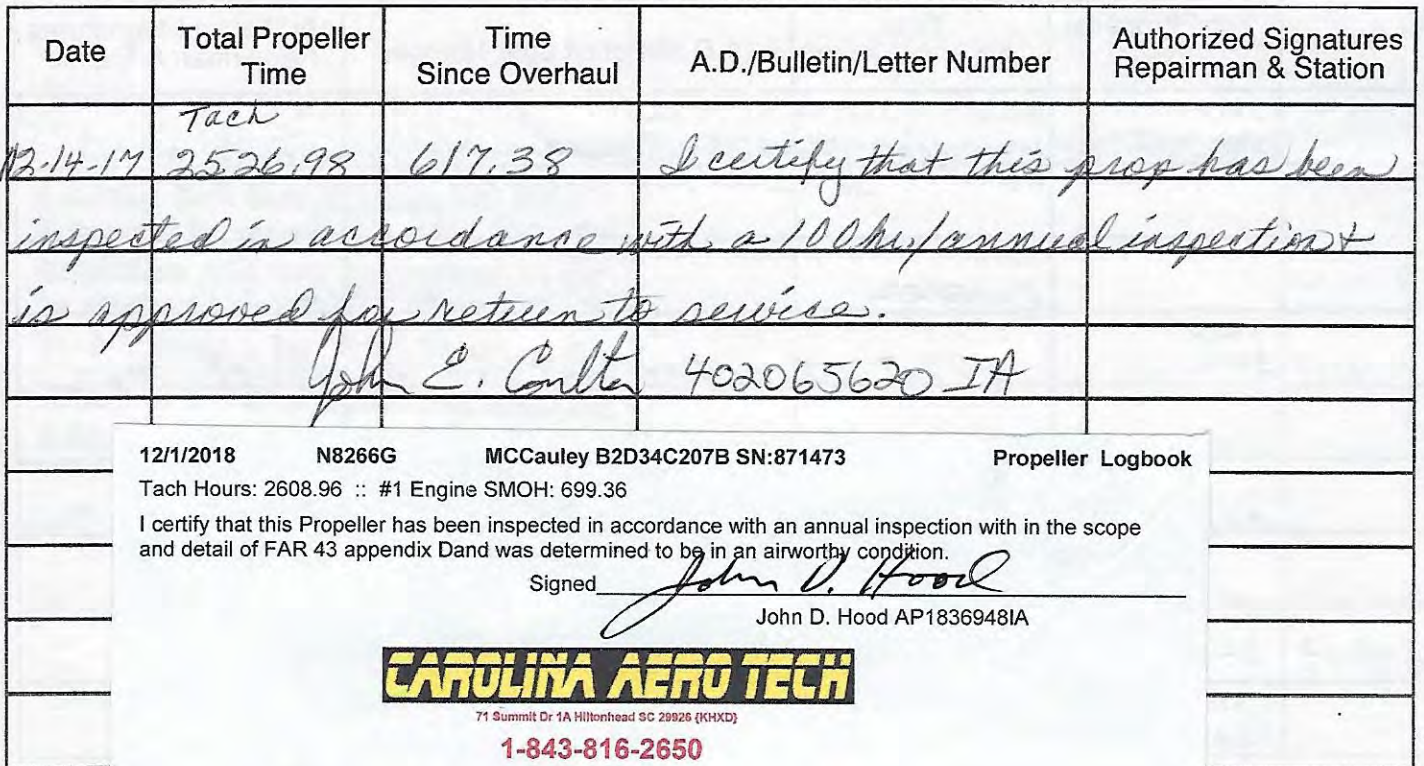 Date Total Propeller Time Time Since Overhaul A.D./Bulletin/Letter Number Authorized Signatures Repairman & Station
Tach
12-14-17 2526.98 617.38 I certify that this prop has been
inspected in accordance with a 100hr/annual inspection &
is approved for return to service.
John E. Coulter 402065620 IA
12/1/2018 N8266G MCCauley B2D34C207B SN:871473 Propeller Logbook
Tach Hours: 2608.96 :: #1 Engine SMOH: 699.36
I certify that this Propeller has been inspected in accordance with an annual inspection with in the scope
and detail of FAR 43 appendix Dand was determined to be in an airworthy condition.
Signed John D. Hood
John D. Hood AP1836948IA
CAROLINA AERO TECH
71 Summit Dr 1A Hiltonhead SC 29926 (KHXD)
1-843-816-2650